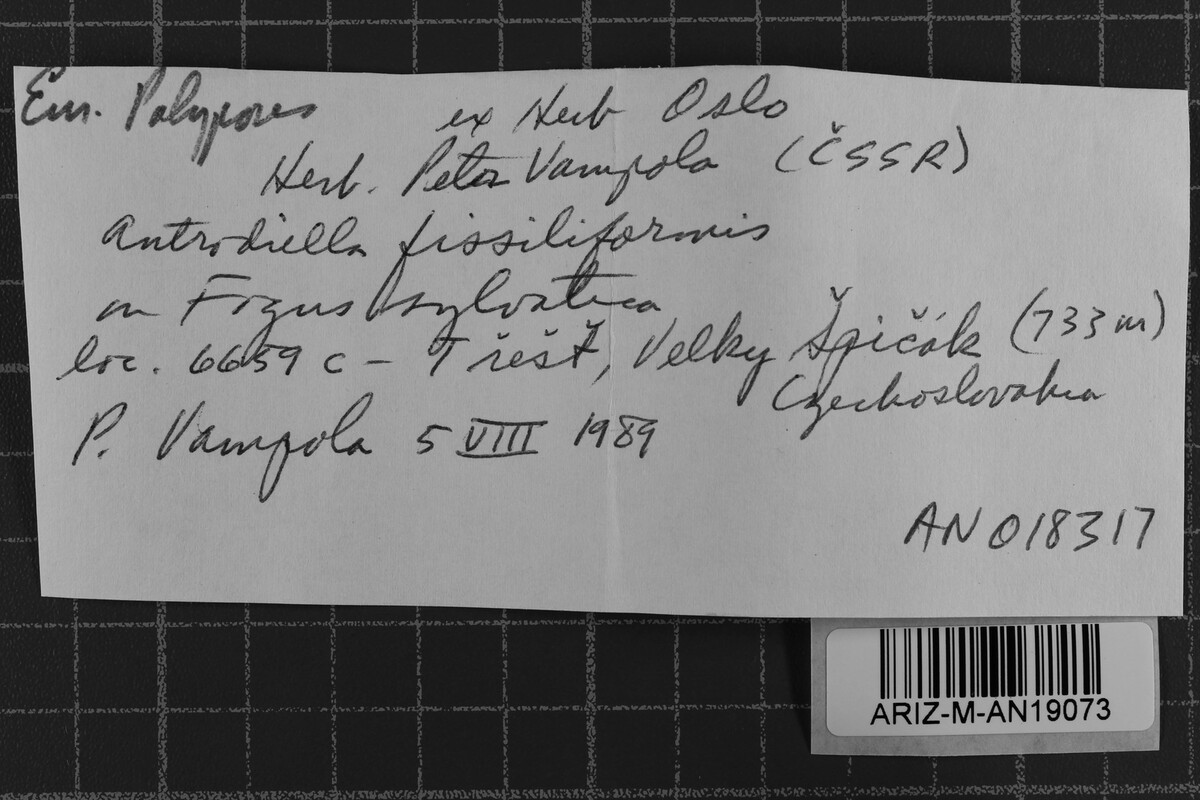 Eur. Polypores ex Herb Oslo
Herb. Petr Vampola (ČSSR)
Antrodiella fissiliformis
on Fagus sylvatica
loc. 6659 c - Třešť, Velky Špičák (733 m)
Czechoslovakia
P. Vampola 5 VIII 1989
AN 018317
ARIZ-M-AN19073